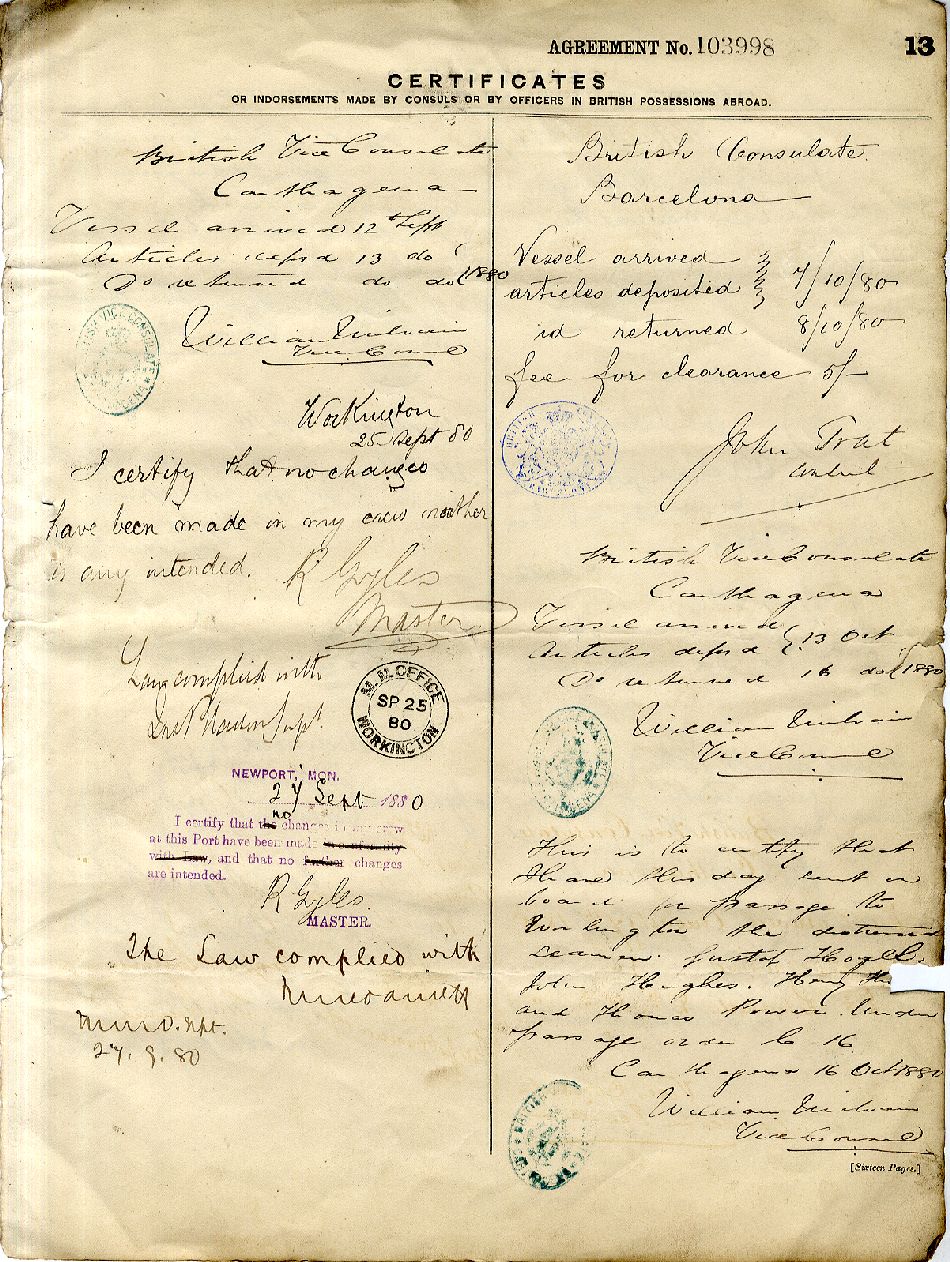 AGREEMENT No. 103998
13
CERTIFICATES
OR INDORSEMENTS MADE BY CONSULS OR BY OFFICERS IN BRITISH POSSESSIONS ABROAD.
British Vice Consulate
Carthagena
Vessel arrived 12th Sept
Articles depsd 13 do
Do returned do do 1880
William
Vice Consul
Workington
25 Sept 80
I certify that no changes
have been made in my crew neither
is any intended. R Gyles
Master
Law complied with
M.M. OFFICE
SP 25
80
WORKINGTON
NEWPORT, MON.
27 Sept 1880
no
I certify that the changes in my crew
at this Port have been made
with Law, and that no further changes
are intended.
R Gyles.
MASTER.
The Law complied with
27. 9. 80
British Consulate
Barcelona
Vessel arrived
articles deposited 7/10/80
id returned 8/10/80
fee for clearance 5/-
John Prat
Consul
British Vice Consulate
Carthagena
Vessel arrived
Articles depsd 13 Oct
Do returned 16 do 1880
William
Vice Consul
This is to certify that
I have this day sent on
board for passage to
Workington the distressed
seamen: Gustaf
John Hughes. Henry
and Thomas Power. Under
passage order C 16
Carthagena 16 Oct 1880
William
Vice Consul
[Sixteen Pages.]